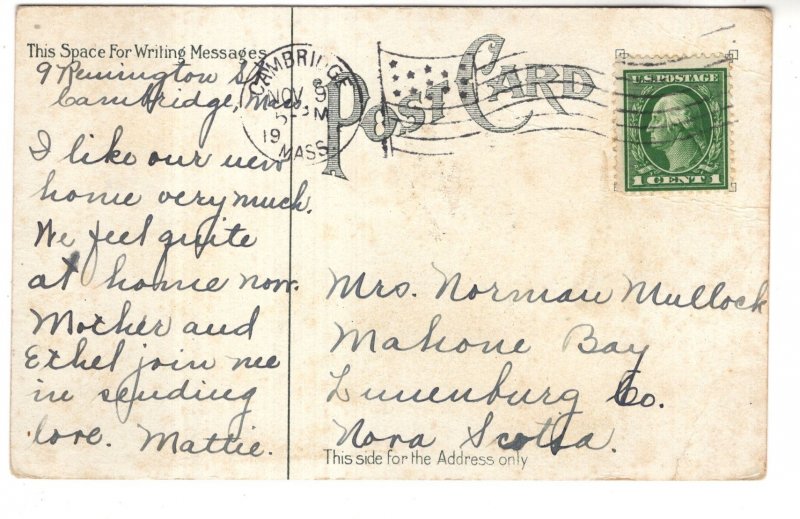 This Space For Writing Messages
9 Remington St.
Cambridge, Mass.
I like our new
home very much.
We feel quite
at home now.
Mother and
Ethel join me
in sending
love. Mattie.
CAMBRIDGE
NOV
5
M
19
MASS.
POST CARD
U.S. POSTAGE
1 CENT 1
Mrs. Norman Mullock
Mahone Bay
Lunenburg Co.
Nova Scotia.
This side for the Address only